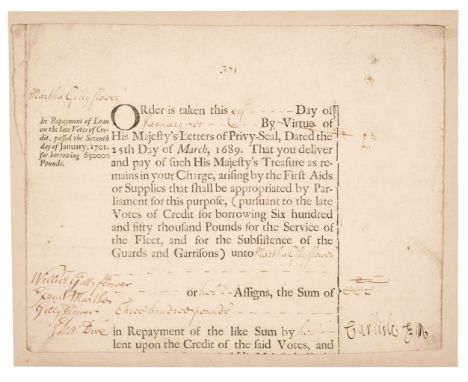 371
Martha Gillyflower
In Repayment of Loan
on the late Votes of Cre-
dit, passed the Seventh
day of January, 1701.
for borrowing 650000
Pounds.
ORder is taken this Day of
January 1701 By Virtue of
His Majesty's Letters of Privy-Seal, Dated the
25th Day of March, 1689. That you deliver
and pay of such His Majesty's Treasure as re-
mains in your Charge, arising by the First Aids
or Supplies that shall be appropriated by Par-
liament for this purpose, (pursuant to the late
Votes of Credit for borrowing Six hundred
and fifty thousand Pounds for the Service of
the Fleet, and for the Subsistence of the
Guards and Garrisons) unto Martha Gillyflower
or her Assigns, the Sum of
Three hundred pounds
in Repayment of the like Sum by her
lent upon the Credit of the said Votes, and
Gillyflower
Martha
Gillyflower
Carlisle